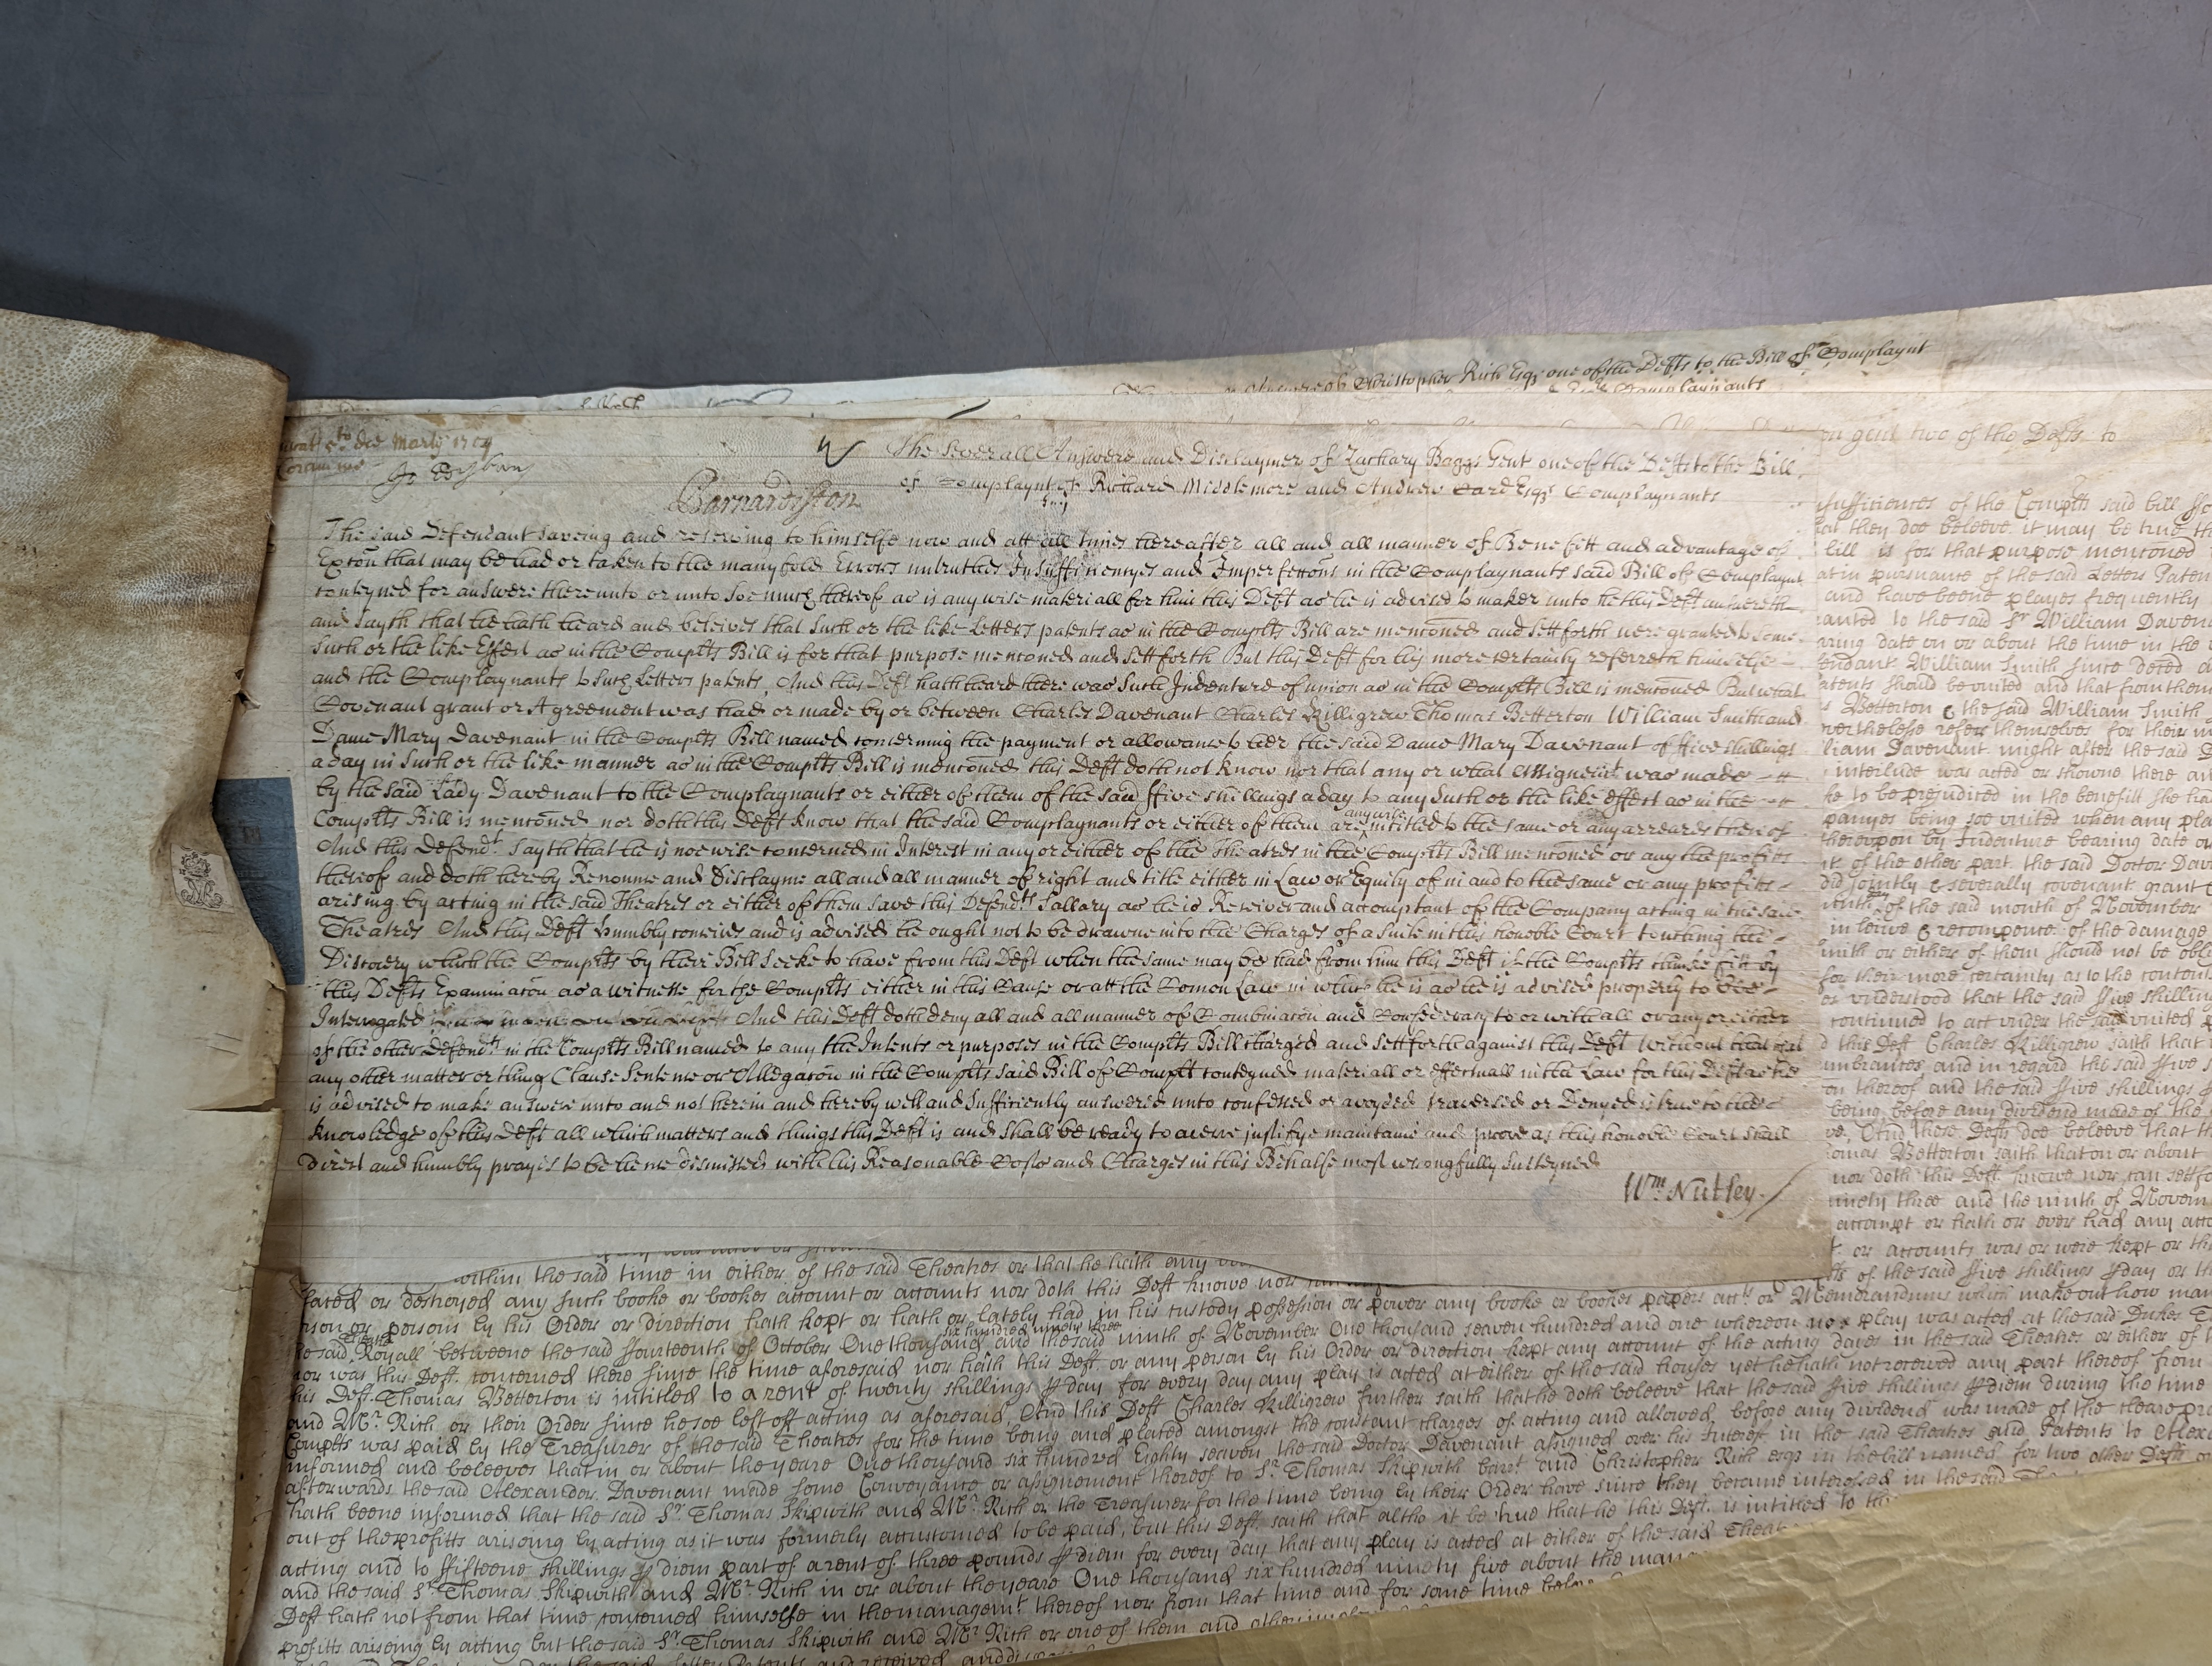 Christopher Rich Esqr one of the Defts to the Bill of Complaynt
Complaynants
Jurat 5to die Martij 1704
Coram me
The severall Answere and Disclaymer of Zachary Baggs Gent one of the Defts to the Bill
of Complaynt of Richard Middlemore and Andrew Card Esqrs Complaynants
Barnardiston
The said Defendant saveing and reserving to himselfe now and att all times hereafter all and all manner of Benefitt and advantage of
Excepcon that may be had or taken to the manyfold Errors untruthes Insufficiencyes and Imperfeccons in the Complaynants said Bill of Complaynt
conteyned for answere thereunto or unto soe much thereof as is any wise materiall for him this Deft as he is advised to make unto he this Deft answereth
and sayth that he hath heard and beleives that such or the like Letters patents as in the Complts Bill are menconed and sett forth were granted to some
such or the like Effect as in the Complts Bill is for that purpose menconed and sett forth But this Deft for his more certainty referreth himselfe
and the Complaynants to such Letters patents, And this Deft hath heard there was such Indenture of union as in the Complts Bill is menconed But what
Covenant grant or Agreement was had or made by or between Charles Davenant Charles Killigrew Thomas Betterton William Smith and
Dame Mary Davenant in the Complts Bill named concerning the payment or allowance to her the said Dame Mary Davenant of ffive shillings
a day in such or the like manner as in the Complts Bill is menconed this Deft doth not know nor that any or what Assignemt was made
by the said Lady Davenant to the Complaynants or either of them of the said ffive shillings a day to any such or the like effect as in the
Complts Bill is menconed nor doth this Deft know that the said Complaynants or either of them are any wise intitled to the same or any arreares thereof
And this Defendt sayth that he is noe wise concerned in Interest in any or either of the Theatres in the Complts Bill menconed or any the profitts
thereof and doth hereby Renounce and Disclayme all and all manner of right and title either in Law or Equity of in and to the same or any profitts
arising by acting in the said Theatres or either of them save this Defendts Sallary as he is Receiver and accomptant of the Company acting in the said
Theatres And this Deft humbly conceives and is advised he ought not to be drawne into the Charges of a suite in this honoble Court touching the
Discovery which the Complts by their Bill seeke to have from this Deft when the same may be had from him this Deft if the Complts thinke fitt by
this Defts Examinacon as a witnesse for the Complts either in this Cause or att the Comon Law in which he is as he is advised properly to bee
Interogated And this Deft doth deny all and all manner of Combinacon and Confederacy to or with all or any or either
of the other Defendts in the Complts Bill named to any the Intents or purposes in the Complts Bill charged and sett forth against this Deft without that that
any other matter or thing Clause Sentence or Allegacon in the Complts said Bill of Complt conteyned materiall or effectuall in the Law for this Deft as he
is advised to make answere unto and not herein and hereby well and sufficiently answered unto confessed or avoyded traversed or Denyed is true to the
knowledge of this Deft all which matters and things this Deft is and shall be ready to averre justifye maintaine and prove as this honoble Court shall
direct and humbly prayes to be hence dismissed with his Reasonable Costs and Charges in this Behalfe most wrongfully susteyned
Wm Nutley
gent two of the Defts to
of the Complts said bill
that they doe beleeve it may be true
bill is for that purpose mentioned
in pursuance of the said Letters Paten
and have beene playes frequently
to the said Sr William Daven
date on or about the time in the
William Smith since deced
should be united and that from then
Betterton & the said William Smith
neverthelesse refers themselves for their
Davenant might after the said
interlude was acted or showne there
to be prejudiced in the benefitt she
being soe united when any pla
thereupon by Indenture bearing date
of the other part the said Doctor Dav
did joyntly & severally covenant grant
of the said month of November
in leiwe & recompence of the damage
Smith or either of them should not be obl
for their more certainty as to the content
or understood that the said ffive shilling
continued to act under the said united
this Deft Charles Killigrew saith that
and in regard the said ffive
thereof and the said ffive shillings
being before any dividend made of the
And these Defts doe beleeve that
Betterton saith that on or about
nor doth this Deft knowe nor can
ninety three and the ninth of Novem
accompt or hath or ever had any
or accounts was or were kept or
of the said ffive shillings p day or
within the said time in either of the said Theatres or that he hath any
or destroyed any such booke or bookes account or accounts nor doth this Deft knowe nor
or persons by his Order or direction hath kept or hath or lately had in his custody possession or power any booke or bookes papers accts or Memorandums which make out how man
said Theatre Royall betweene the said ffourteenth of October One thousand six hundred ninety three and the said ninth of November One thousand seaven hundred and one whereon no play was acted at the said Dukes
nor was this Deft concerned there since the time aforesaid nor hath this Deft or any person by his Order or direction kept any account of the acting dayes in the said Theatres or either of
this Deft Thomas Betterton is intitled to a rent of twenty shillings p day for every day any play is acted at either of the said houses yet he hath not received any part thereof from
and Mr Rich or their Order since he soe left off acting as aforesaid, And this Deft Charles Killigrew further saith that he doth beleeve that the said ffive shillings p diem during the time
Complts was paid by the Treasurer of the said Theatres for the time being and placed amongst the constant charges of acting and allowed before any dividend was made of the cleare
informed and beleeves that in or about the yeare One thousand six hundred Eighty seaven the said Doctor Davenant assigned over his Interest in the said Theatres and Patents to
afterwards the said Alexander Davenant made some Conveyance or assignement thereof to Sr Thomas Skipwith bart and Christopher Rich esqr in the bill named for two other Deft
hath beene informed that the said Sr Thomas Skipwith and Mr Rich or the Treasurer for the time being by their Order have since they became interessed in the said
out of the profitts arising by acting as it was formerly accustomed to be paid, but this Deft saith that altho it be true that he this Deft is intitled to
acting and to ffifteene shillings p diem part of a rent of three pounds p diem for every day that any play is acted at either of the said
and the said Sr Thomas Skipwith and Mr Rich in or about the yeare One thousand six hundred ninety five about the
Deft hath not from that time concerned himselfe in the managemt thereof nor from that time and for some time
profitts ariseing by acting but the said Sr Thomas Skipwith and Mr Rich or one of them and